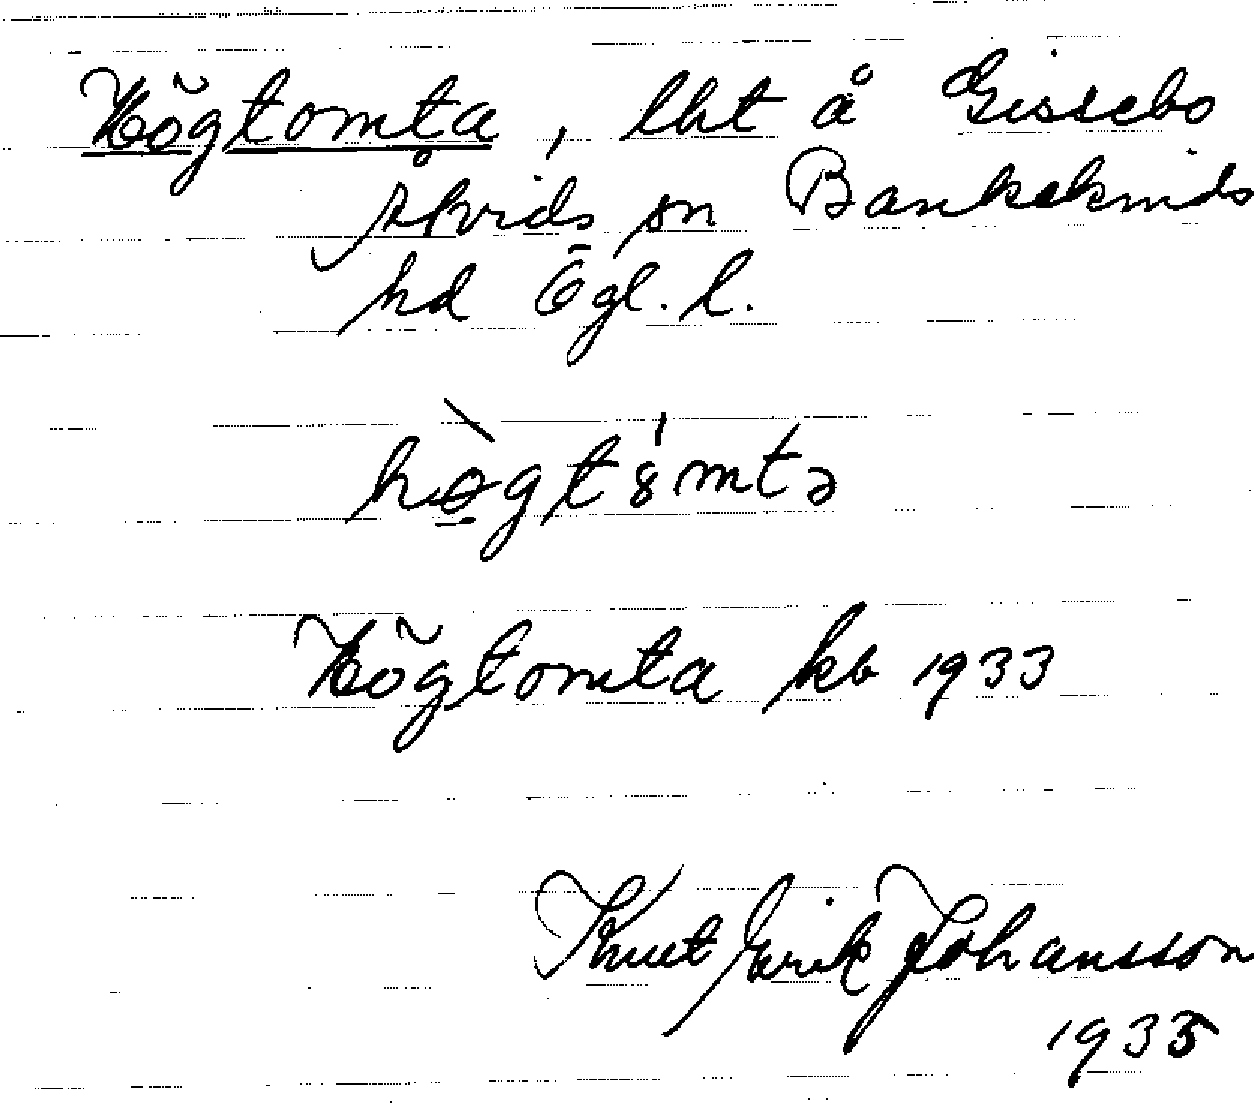 Högtomta, lht å Gissebo
Åtvids sn Bankekinds
hd Ögl. l.
Högtomta kb 1933
Knut Erik Johansson
1935